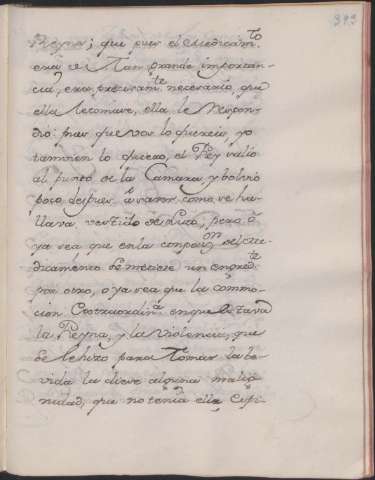 393
Reyna; que pues el Medicam.to
era de tan grande importan-
cia, era precisam.te necesario, que
ella le tomase, ella le respon-
dio: pues que vos lo quereis, yo
tambien lo quiero, el Rey salio
al punto de la Camara, y bolvio
poco despues a saver como se ha-
llava, vestido de luto, pero ô
ya sea que en la composi.on del Me-
dicamento se metiese un engred.te
por otro, o ya sea que la commo-
cion extraordin.a en que estava
la Reyna, y la violencia, que
se le hizo para tomar la be-
vida la diese alguna malig-
nidad, que no tenia ella, espi-